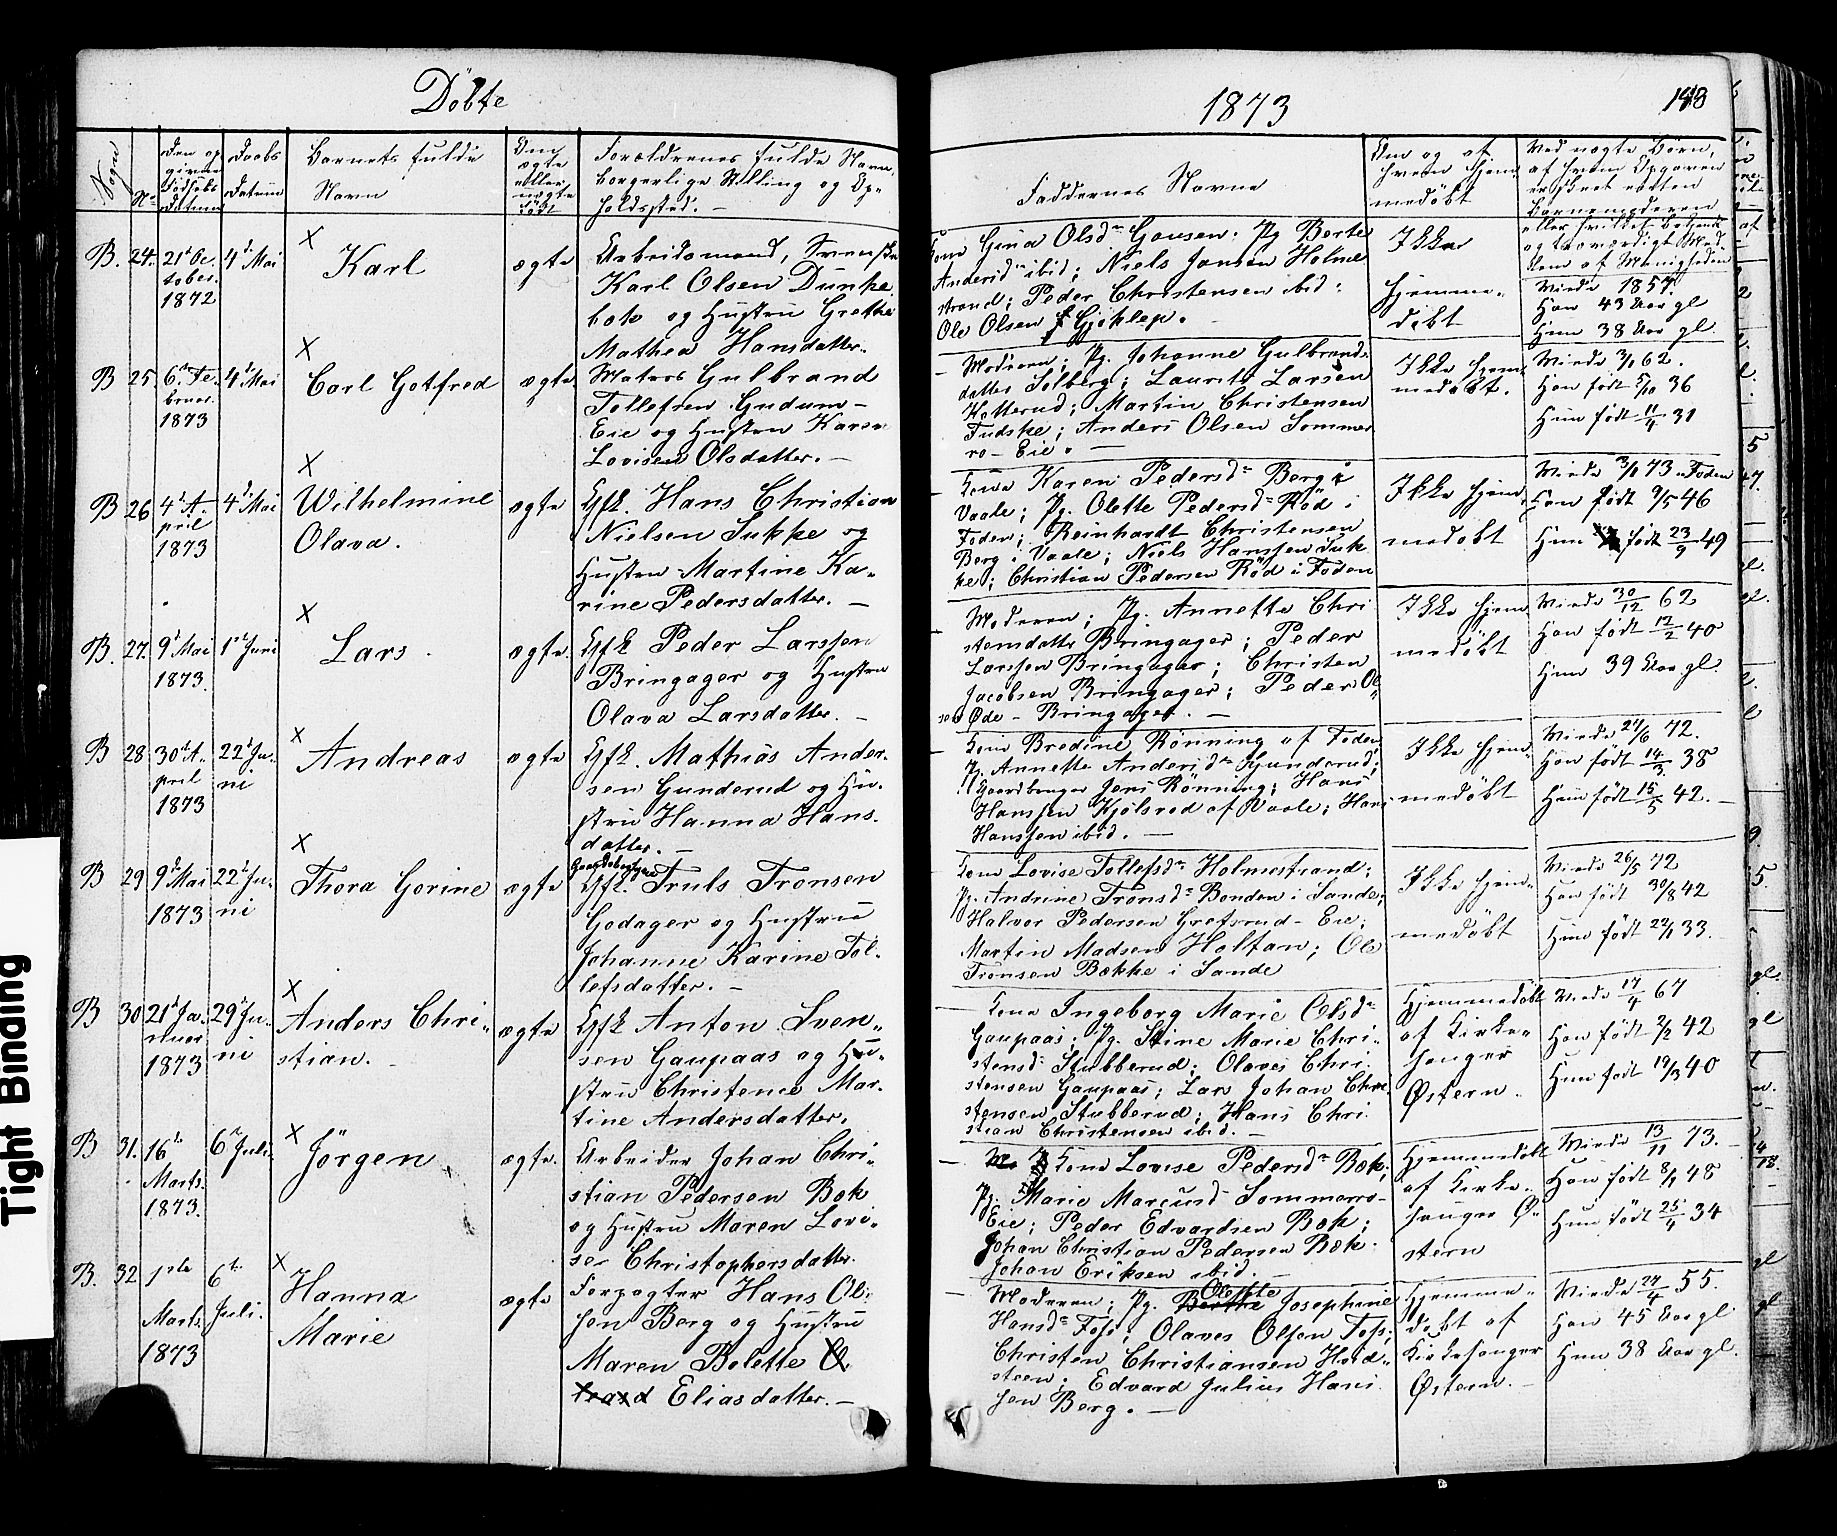 Döbte
1873
Sogn
No
Den op
givne
Födsels
Datum
Daabs
Datum
Barnets fulde
Navn
Om
ægte
eller
uægte
födt
Forældrenes fulde Navne,
borgerlige Stilling og Op-
holdssted. —
Faddernes Navne
Om og af
hvem hjem
medöbt
Ved uægte Börn,
af hvem Opgaven
er skeet enten
Barnemoderen
eller hvilket bekjendt
og troværdigt Med
lem af Menigheden
B. 24. 21de Oc
tober.
1872
4de Mai
X
Karl
ægte
Arbeidsmand, Svenske
Karl Olsen Dunke
bok og Hustru Grethe
Mathea Hansdatter.
Kone Gina Olsdr Gousen; Pg Berte
Andersdr ibid; Niels Jansen Holme
strand; Peder Christensen ibid:
Ole Olsen Gjöklep.
Ikke
hjemme-
döbt
Viede 1857.
Han 43 Aar gl
Hun 38 Aar gl.
B 25. 6te Fe
bruar.
1873
4de Mai
X
Carl Gotfred
ægte
Matros Gulbrand
Tollefsen Gudum-
Eie og Hustru Karen
Lovisen Olsdatter. —
— Moderen; Pg. Johanne Gulbrands
datter Solberg; Laurits Larsen
Kotterud; Martin Christensen
Tudske; Anders Olsen Sommer
ro- Eie. —
Ikke hjem
medöbt.
Viede 3/1 62.
Han födt 5/10 36
Hun födt 11/4 31
B 26 4de A-
pril
1873
4de Mai
X
Wilhelmine
Olava.
ægte
Gfl. Hans Christian
Nielsen Sukke og
Hustru Martine Ka-
rine Pedersdatter. —
— Kone Karen Pedersdr Berg i
Vaale; Pg. Olette Pedersdr Röd i
Foden; Reinhardt Christensen
Berg i Vaale; Niels Hanssen Suk
ke; Christian Pedersen Röd i Foden
Ikke hjem
medöbt
Viede 3/1 73 i Foden
Han födt 9/5 46
Hun födt 23/9 49
B. 27. 9de Mai
1873.
1ste Juni
X
Lars.
ægte.
Gfl Peder Larssen
Bringager og Hustru
Olava Larsdatter. —
— Moderen; Pg. Annette Chri
stensdatter Bringager; Peder
Larssen Bringager; Christen
Jacobsen Bringager; Peder Ol-
sen Öde - Bringager. —
Ikke hjem
medöbt
Viede 30/12 62
Han födt 12/2 40
Hun 39 Aar gl.
B 28 30te A-
pril
1873
22de Ju-
ni
X
Andreas
ægte
Gfl. Mathias Ander-
sen Gunderud og Hu-
stru Hanna Hans-
datter. —
— Kone Bredine Rönning af Foden
Pg. Annette Andersdr Gunderud;
Gaardbruger Jens Rönning; Hans
Hanssen Kjölsrod af Vaale; Hans
Hanssen ibid. —
Ikke hjem-
medöbt
Viede 27/6 72.
Han födt 14/3 38
Hun födt 15/5 42. —
B 29 9de Mai
1873
22de Ju-
ni
X
Thora Gorine
ægte
Gaardebruger
Gfl. Truls Tronsen
Godager og Hustru
Johanne Karine Tol-
lefsdatter. —
Kone Lovise Tollefsdr Holmestrand;
Pg. Andrine Tronsdr Bonden i Sande;
Halvor Pedersen Grefsrud - Eie;
Martin Madsen Holtan; Ole
Tronsen Bække i Sande
Ikke hjem-
medöbt
Viede 26/5 72
Han födt 30/8 42
Hun födt 22/1 33.
B 30 21de Ja-
nuar
1873
29de Ju-
ni
X
Anders Chri-
stian.
ægte
Gfl Anton Sven-
sen Gaupaas og Hu-
stru Christence Mar-
tine Andersdatter.
— Kone Ingeborg Marie Olsdr
Gaupaas; Pg. Stine Marie Chri-
stensd Stubberud; Olaves Chri
stensen Gaupaas; Lars Johan Chri
stensen Stubberud; Hans Chri
stian Christensen ibid. —
Hjemmedöbt
af Kirke-
sanger
Östern.
Viede 17/4 67
Han födt 2/2 42
Hun födt 19/3 40
B 31. 16de
Marts.
1873.
6te Juli.
X
Jörgen
ægte.
Arbeider Johan Chri-
stian Pedersen Bok
og Hustru Maren Lovi-
se Christophersdatter.
— Kone Lovise Pedersdr Bok;
Pg. Marie Marcusd Sommerro-
Eie; Peder Edvardsen Bok;
Johan Christian Pedersen Bok.
Johan Eriksen ibid.
Hjemmedöbt
af Kirke-
sanger Ö-
stern
Viede 13/11 73.
Han födt 8/1 48
Hun födt 25/4 34
B. 32 1ste
Marts.
1873
6te
Juli.
X
Hanna
Marie
ægte
Forpagter Hans Ol-
sen Berg og Hustru
Maren Bolette
Eliasdatter. —
— Moderen; Pg. Berthe Olette Josephine
Hansdr Foss; Olaves Olsen Foss;
Christen Christiansen Hold-
steen. Edvard Julius Hans
sen Berg. —
Hjemme-
döbt af
Kirkesanger
Östern. —
Viede 24/4 55
Han 45 Aar gl
Hun 38 Aar gl.
Tight Binding